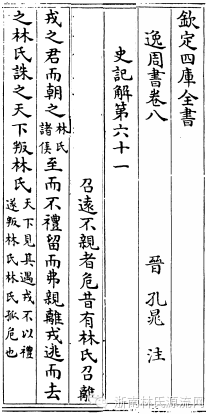 欽定四庫全書
逸周書卷八
晉 孔晁 注
史記解第六十一
召遠不親者危昔有林氏召離
戎之君而朝之林氏諸侯至而不禮留而弗親離戎逃而去
之林氏誅之天下叛林氏天下見其遇戎不以禮遂叛林氏林氏孤危也
浙南林氏源流网